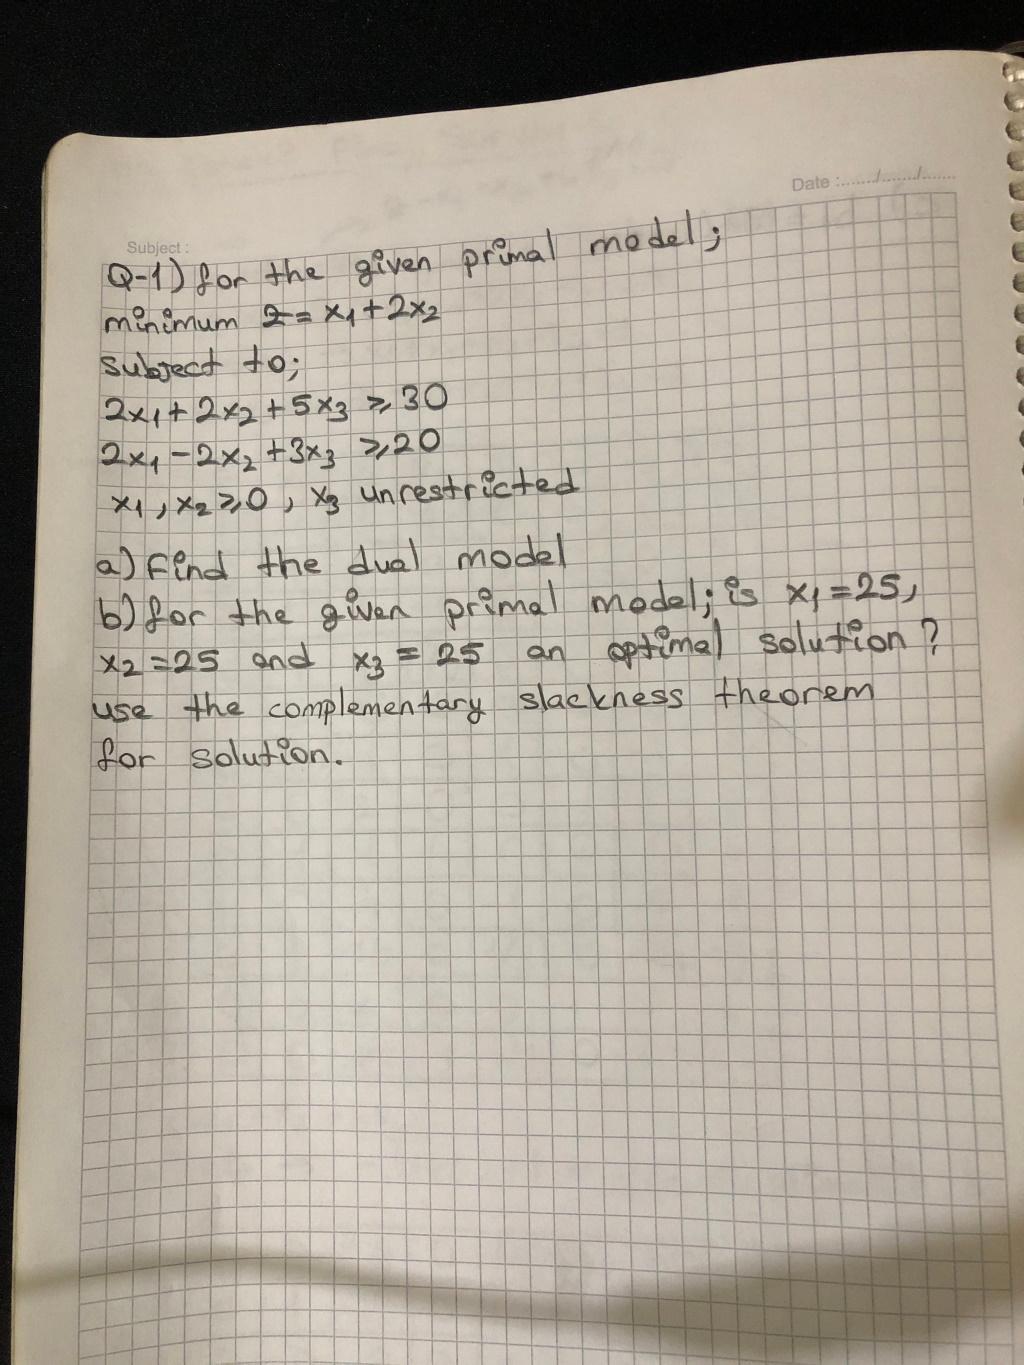 Date :......../......../........
Subject :
Q-1) for the given primal model;
minimum Z = x₁ + 2x₂
subject to;
2x₁ + 2x₂ + 5x₃ ≥ 30
2x₁ - 2x₂ + 3x₃ ≥ 20
x₁, x₂ ≥ 0, x₃ unrestricted
a) Find the dual model
b) for the given primal model; is x₁ = 25,
x₂ = 25 and x₃ = 25 an optimal solution?
use the complementary slackness theorem
for solution.